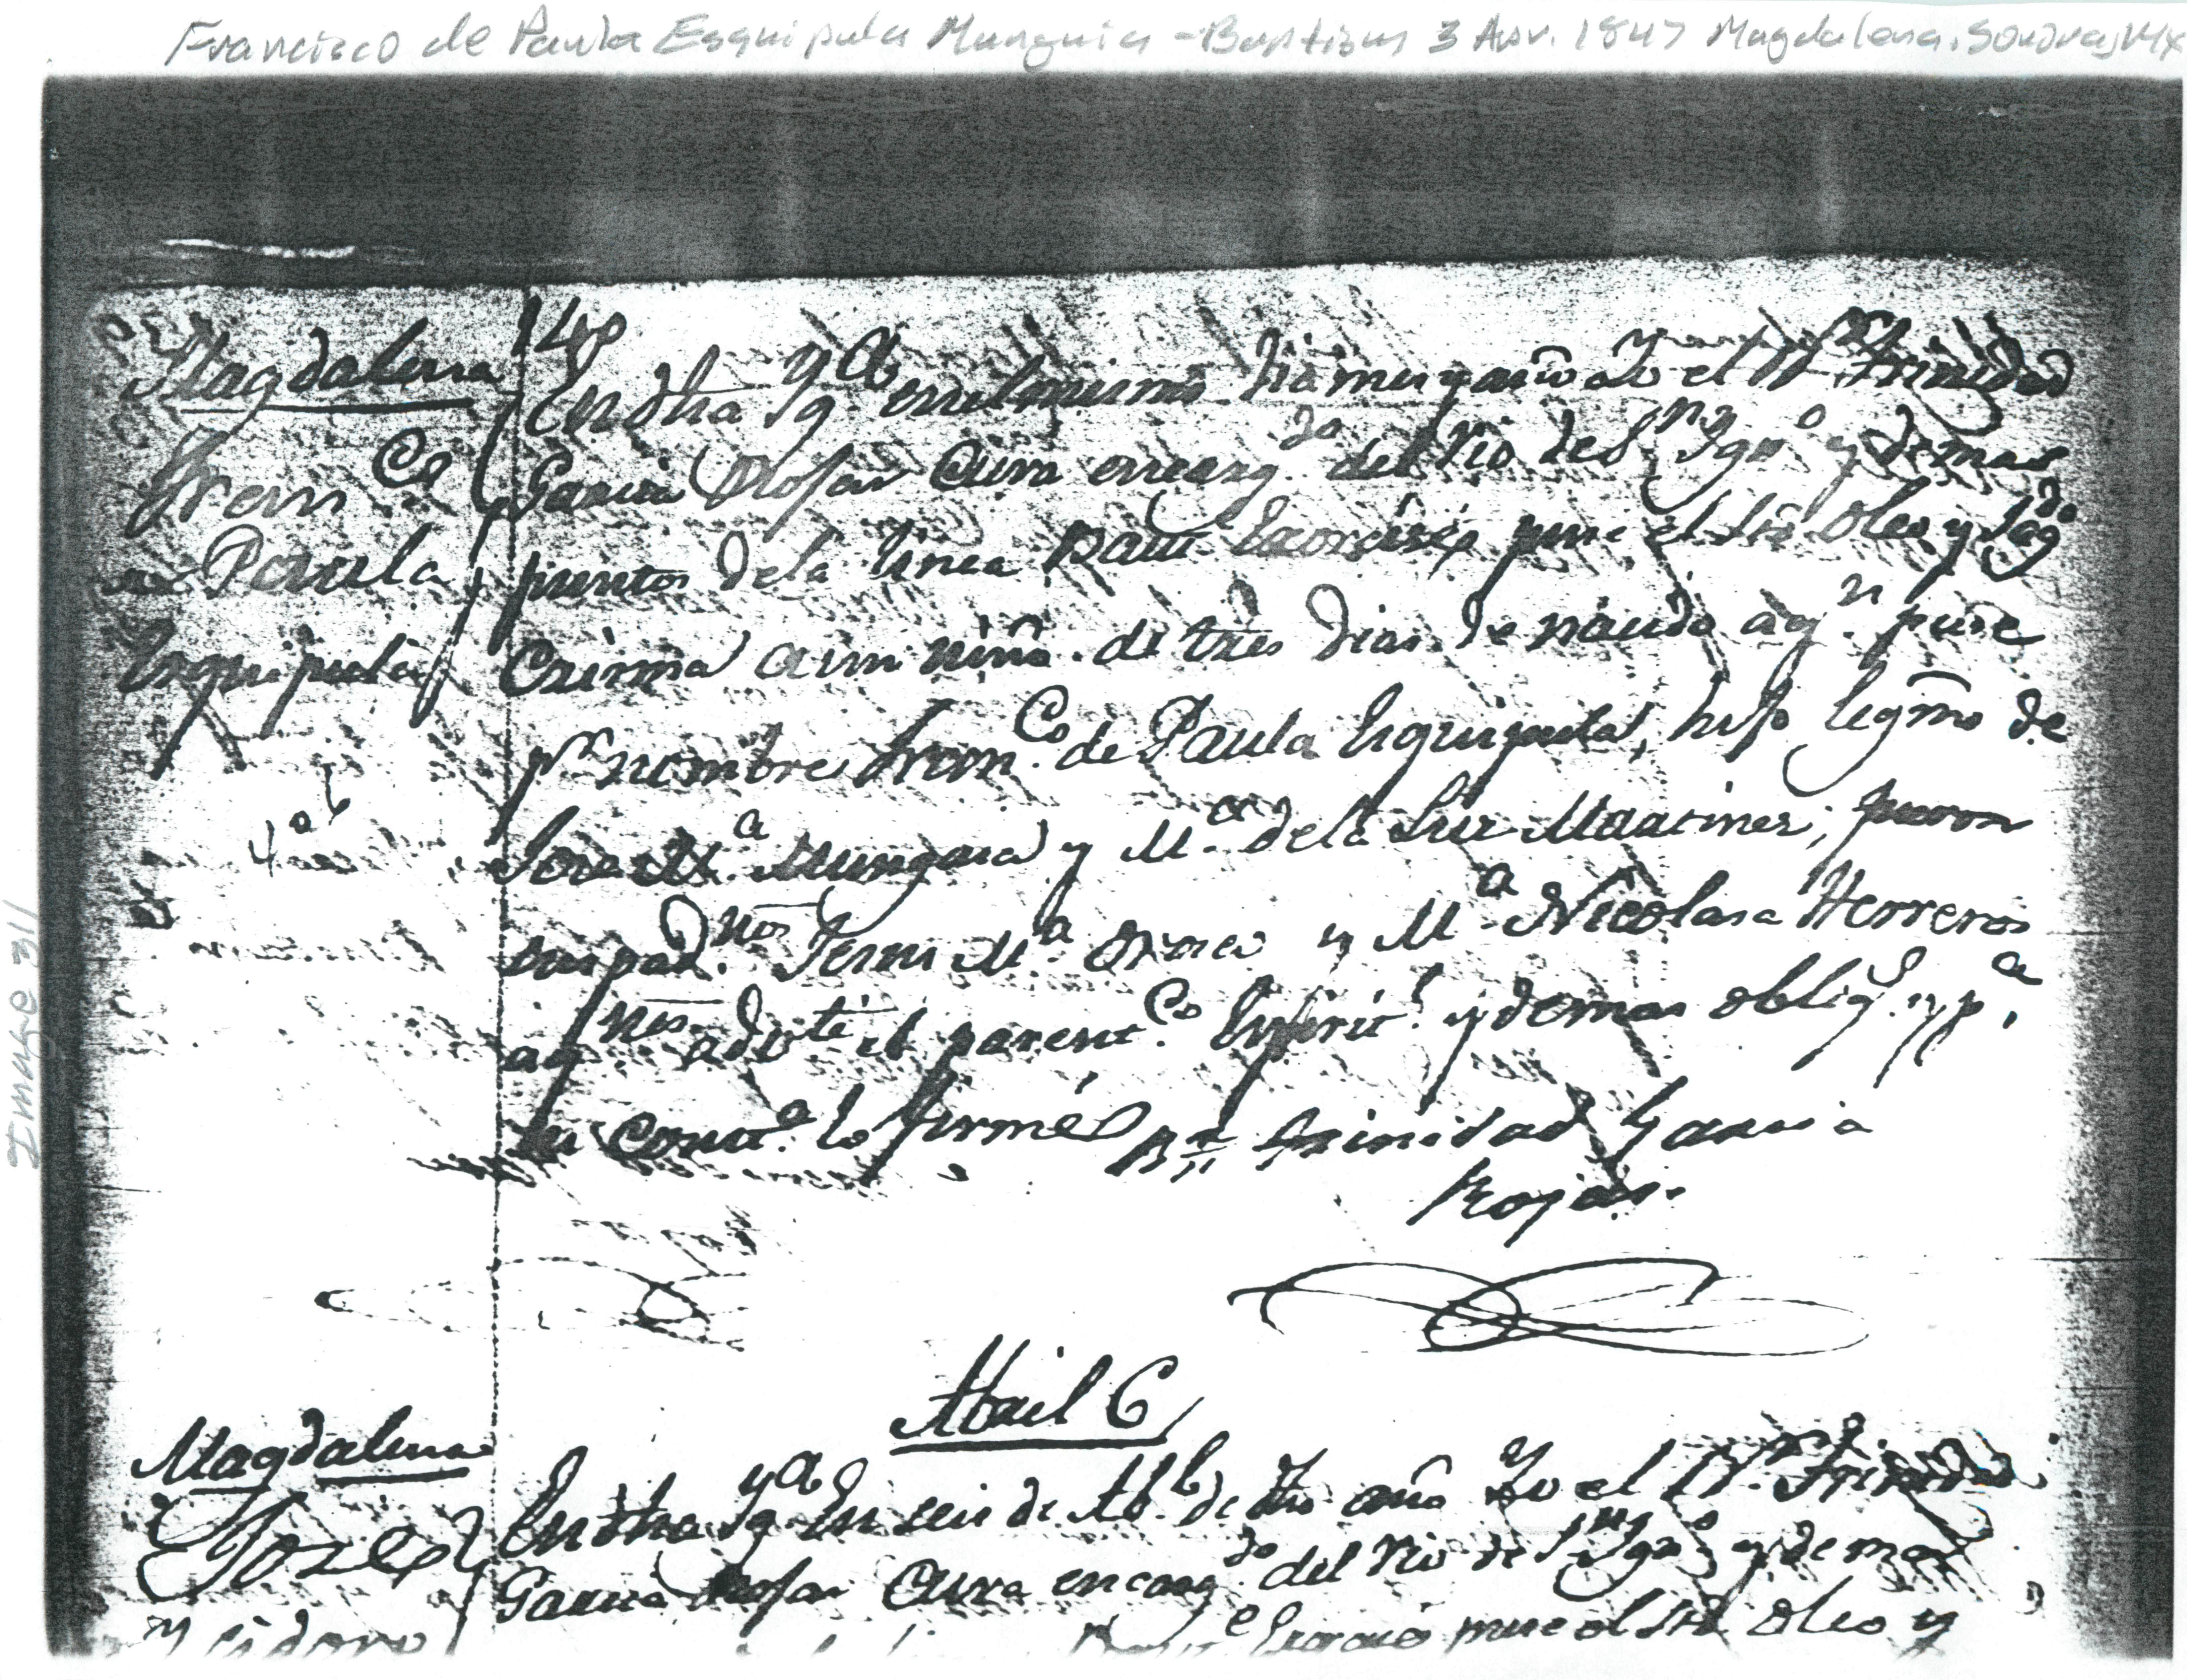 Francisco de Paula Esquipula Munguia - Baptism 3 Apr. 1847 Magdalena, Sonora, Mx
Image 31
Magdalena
Fran.co
Paula
Esquipula
En dha Yg.a en el mismo dia mes y año Yo el Br. Trinidad
Garcia Rojas Cura encarg.do del Rio de S.n Ygn.o y demas
puntos de la linea Bauti Exorcisé puse el Sto Oleo y Sag.do
Crisma a un niño de tres dias de nacido a q.n puse
p.r nombre Fran.co de Paula Esquipula, hijo legmo de
Jose M.a Munguia y M.a de la Luz Martines; fueron
sus pad.nos Jesus M.a y M.a Nicolasa Herreros
a q.nes adv.ti el parent.co Espirit.l y demas oblig.s y p.a
su const.a lo firmé Br. Trinidad Garcia
Rojas.
Abril 6
Magdalena
Jose
Ysidoro
En dha Yg.a En seis de Ab.l de dho año Yo el Br. Trinidad
Garcia Rojas Cura encarg.do del Rio de S.n Ygn.o y demas
puse el Sto Oleo y